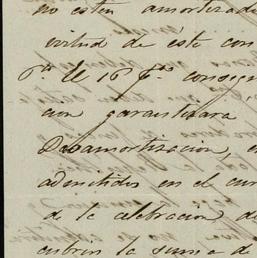 no esten amortizad
virtud de este con
6ª El 16 p% consign
cion garantizara
Desamortizacion, e
admitidos en el cur
de la celebracion de
cubrir la suma de